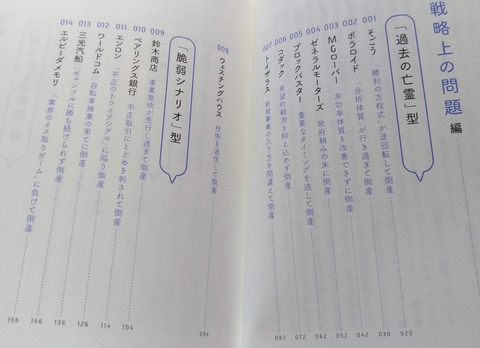 戦略上の問題 編
「過去の亡霊」型
001 そごう 「勝利の方程式」が逆回転して倒産 020
002 ポラロイド 「分析体質」が行き過ぎて倒産 030
003 MGローバー 非効率体質を改善できずに倒産 042
004 ゼネラルモーターズ 政府頼みの末に倒産 052
005 ブロックバスター 重要なタイミングを逃して倒産 062
006 コダック 希望的観測を抑え込めず倒産 072
007 トイザラス 新規事業の入り方を間違えて倒産 082
008 ウェスチングハウス 技術を過信して倒産 094
「脆弱シナリオ」型
009 鈴木商店 事業意欲が先行し過ぎて倒産 104
010 ベアリングス銀行 不正取引にとどめを刺されて倒産 114
011 エンロン 「不正のトライアングル」に陥り倒産 124
012 ワールドコム 自転車操業の果てに倒産 126
013 三光汽船 「ギャンブル」に勝ち続けられず倒産 146
014 エルピーダメモリ 業界の「イス取りゲーム」に負けて倒産 156